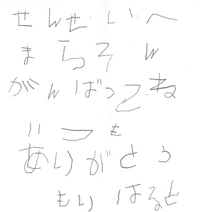 せんせいへ
まらそん
がんばってね
いつも
ありがとう
もりはると